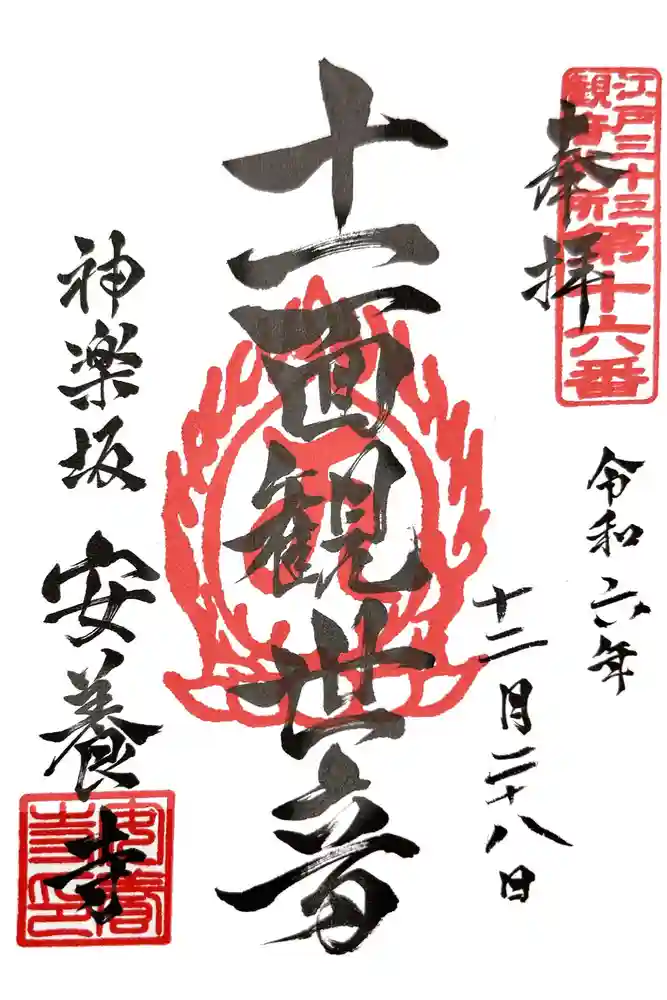 奉拝
江戸三十三
観音札所
第十六番
令和六年
十二月二十八日
十一面観世音
神楽坂
安養寺
安養
寺印